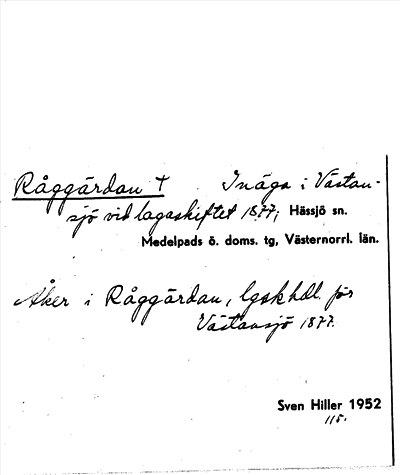 Råggärdan † Inäga i Västan-
sjö vid lagaskiftet 1877; Hässjö sn.
Medelpads ö. doms. tg, Västernorrl. län.
Åker i Råggärdan, lgskhdl. för
Västansjö 1877.
Sven Hiller 1952
115.